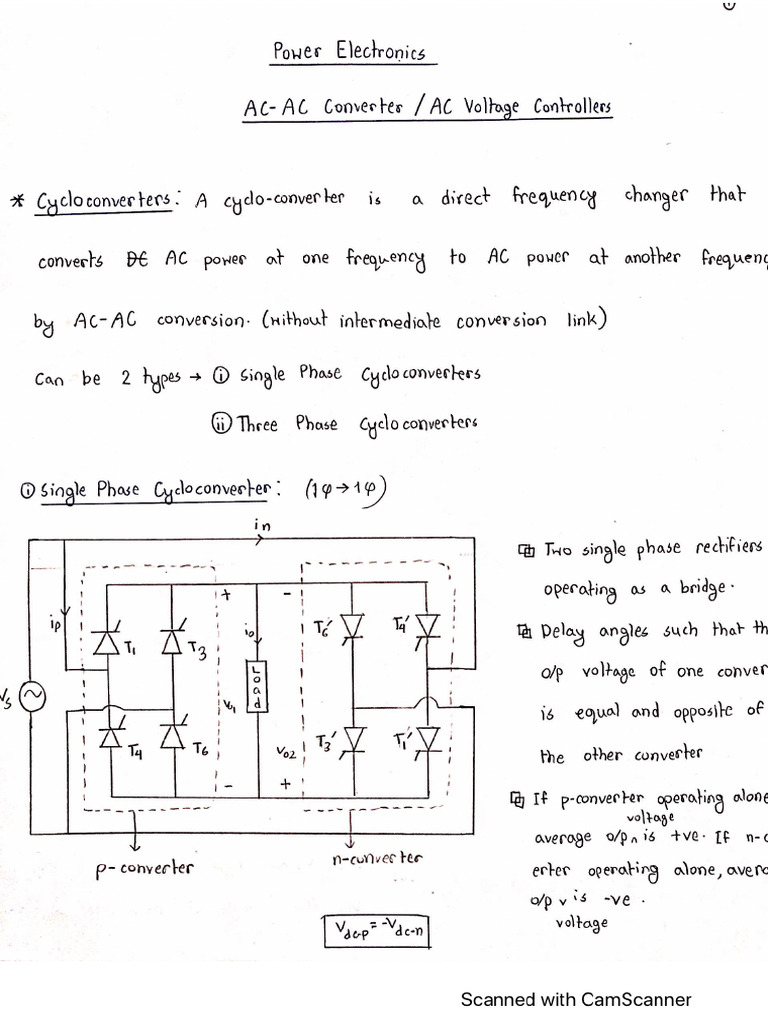 ①
Power Electronics
AC-AC Converter / AC Voltage Controllers
* Cycloconverters: A cyclo-converter is a direct frequency changer that
converts DC AC power at one frequency to AC power at another frequenc
by AC-AC conversion. (without intermediate conversion link)
Can be 2 types → ⓘ Single Phase Cycloconverters
ⓘⓘ Three Phase Cycloconverters
ⓘ Single Phase Cycloconverter: (1φ→1φ)
in
ip
+
-
T1
T3
io
Load
T6'
T4'
Vs
Vo1
T4
T6
Vo2
T3'
T1'
-
+
p-converter
n-converter
Vdc-p = -Vdc-n
Two single phase rectifiers
operating as a bridge.
Delay angles such that th
o/p voltage of one conver
is equal and opposite of
the other converter
If p-converter operating alone
average o/p ^ voltage is +ve. If n-c
erter operating alone, avera
o/p v voltage is -ve.
Scanned with CamScanner